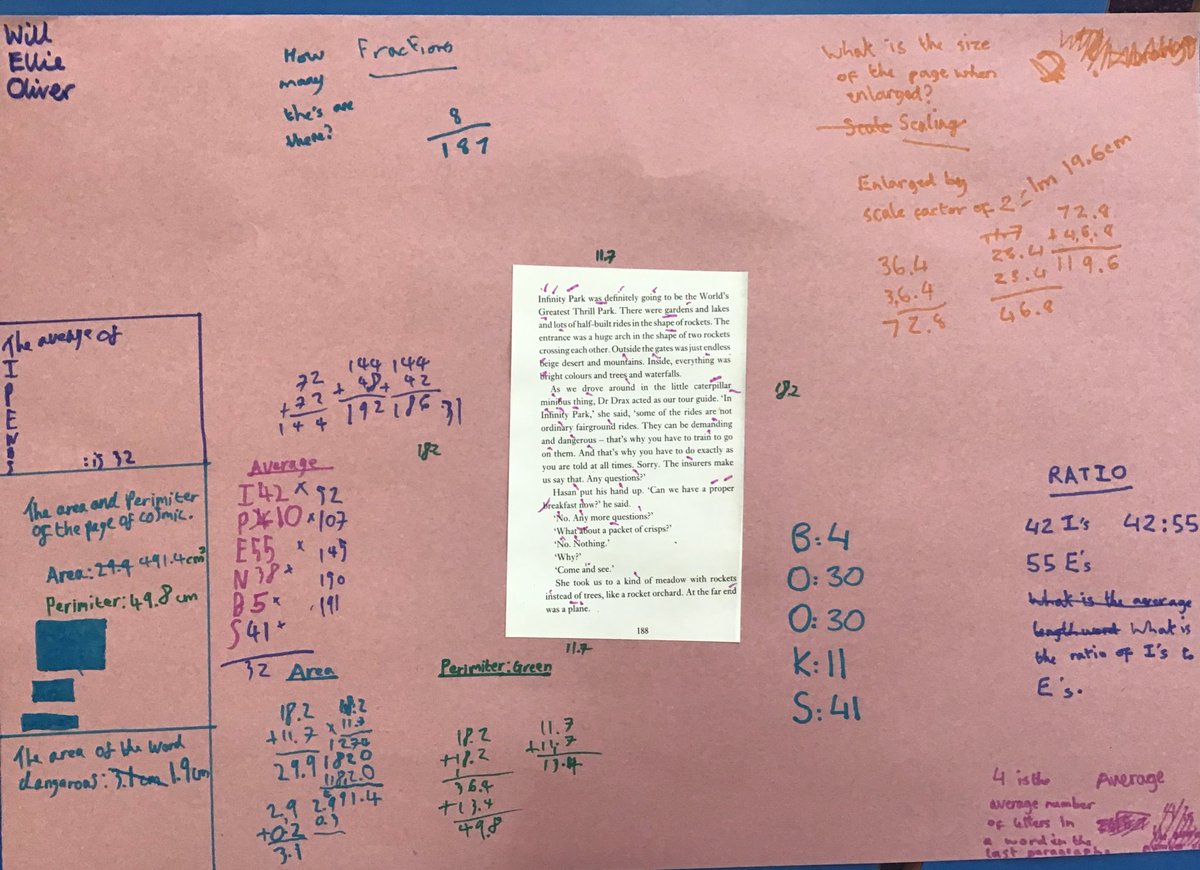 Will
Ellie
Oliver
How
many
the's are
there?
Fractions
8
187
What is the size
of the page when
enlarged?
Scale Scaling
Enlarged by
scale factor of 2 = 1m 19.6cm
36.4
36.4
72.8
23.4
23.4
46.8
72.8
+46.8
119.6
11.7
Infinity Park was definitely going to be the World's
Greatest Thrill Park. There were gardens and lakes
and lots of half-built rides in the shape of rockets. The
entrance was a huge arch in the shape of two rockets
crossing each other. Outside the gates was just endless
beige desert and mountains. Inside, everything was
bright colours and trees and waterfalls.
As we drove around in the little caterpillar
minibus thing, Dr Drax acted as our tour guide. 'In
Infinity Park,' she said, 'some of the rides are not
ordinary fairground rides. They can be demanding
and dangerous – that's why you have to train to go
on them. And that's why you have to do exactly as
you are told at all times. Sorry. The insurers make
us say that. Any questions?'
Hasan put his hand up. 'Can we have a proper
breakfast now?' he said.
'No. Any more questions?'
'What about a packet of crisps?'
'No. Nothing.'
'Why?'
'Come and see.'
She took us to a kind of meadow with rockets
instead of trees, like a rocket orchard. At the far end
was a plane.
188
11.7
182
182
The average of
I
P
E
N
B
S
: is 32
72
+72
144
144
+48
192
144
+42
186
31
Average
I 42 × 92
P 10 × 107
E 55 × 145
N 38 × 190
B 5 × 191
S 41 +
32
The area and Perimiter
of the page of cosmic.
Area: 29.9 491.4cm²
Perimiter: 49.8 cm
The area of the word
dangerous: 3.1cm 1.9cm
Area
18.2
+11.7
29.9
18.2
× 11.7
1274
1820
1182.0
2.9
+0.2
3.1
Perimiter: Green
18.2
+18.2
36.4
+13.4
49.8
11.7
+11.7
13.4
B: 4
O: 30
O: 30
K: 11
S: 41
RATIO
42 I's 42:55
55 E's
What is the average
length word What is
the ratio of I's to
E's.
4 is the Average
average number
of letters in
a word in the
last paragraph